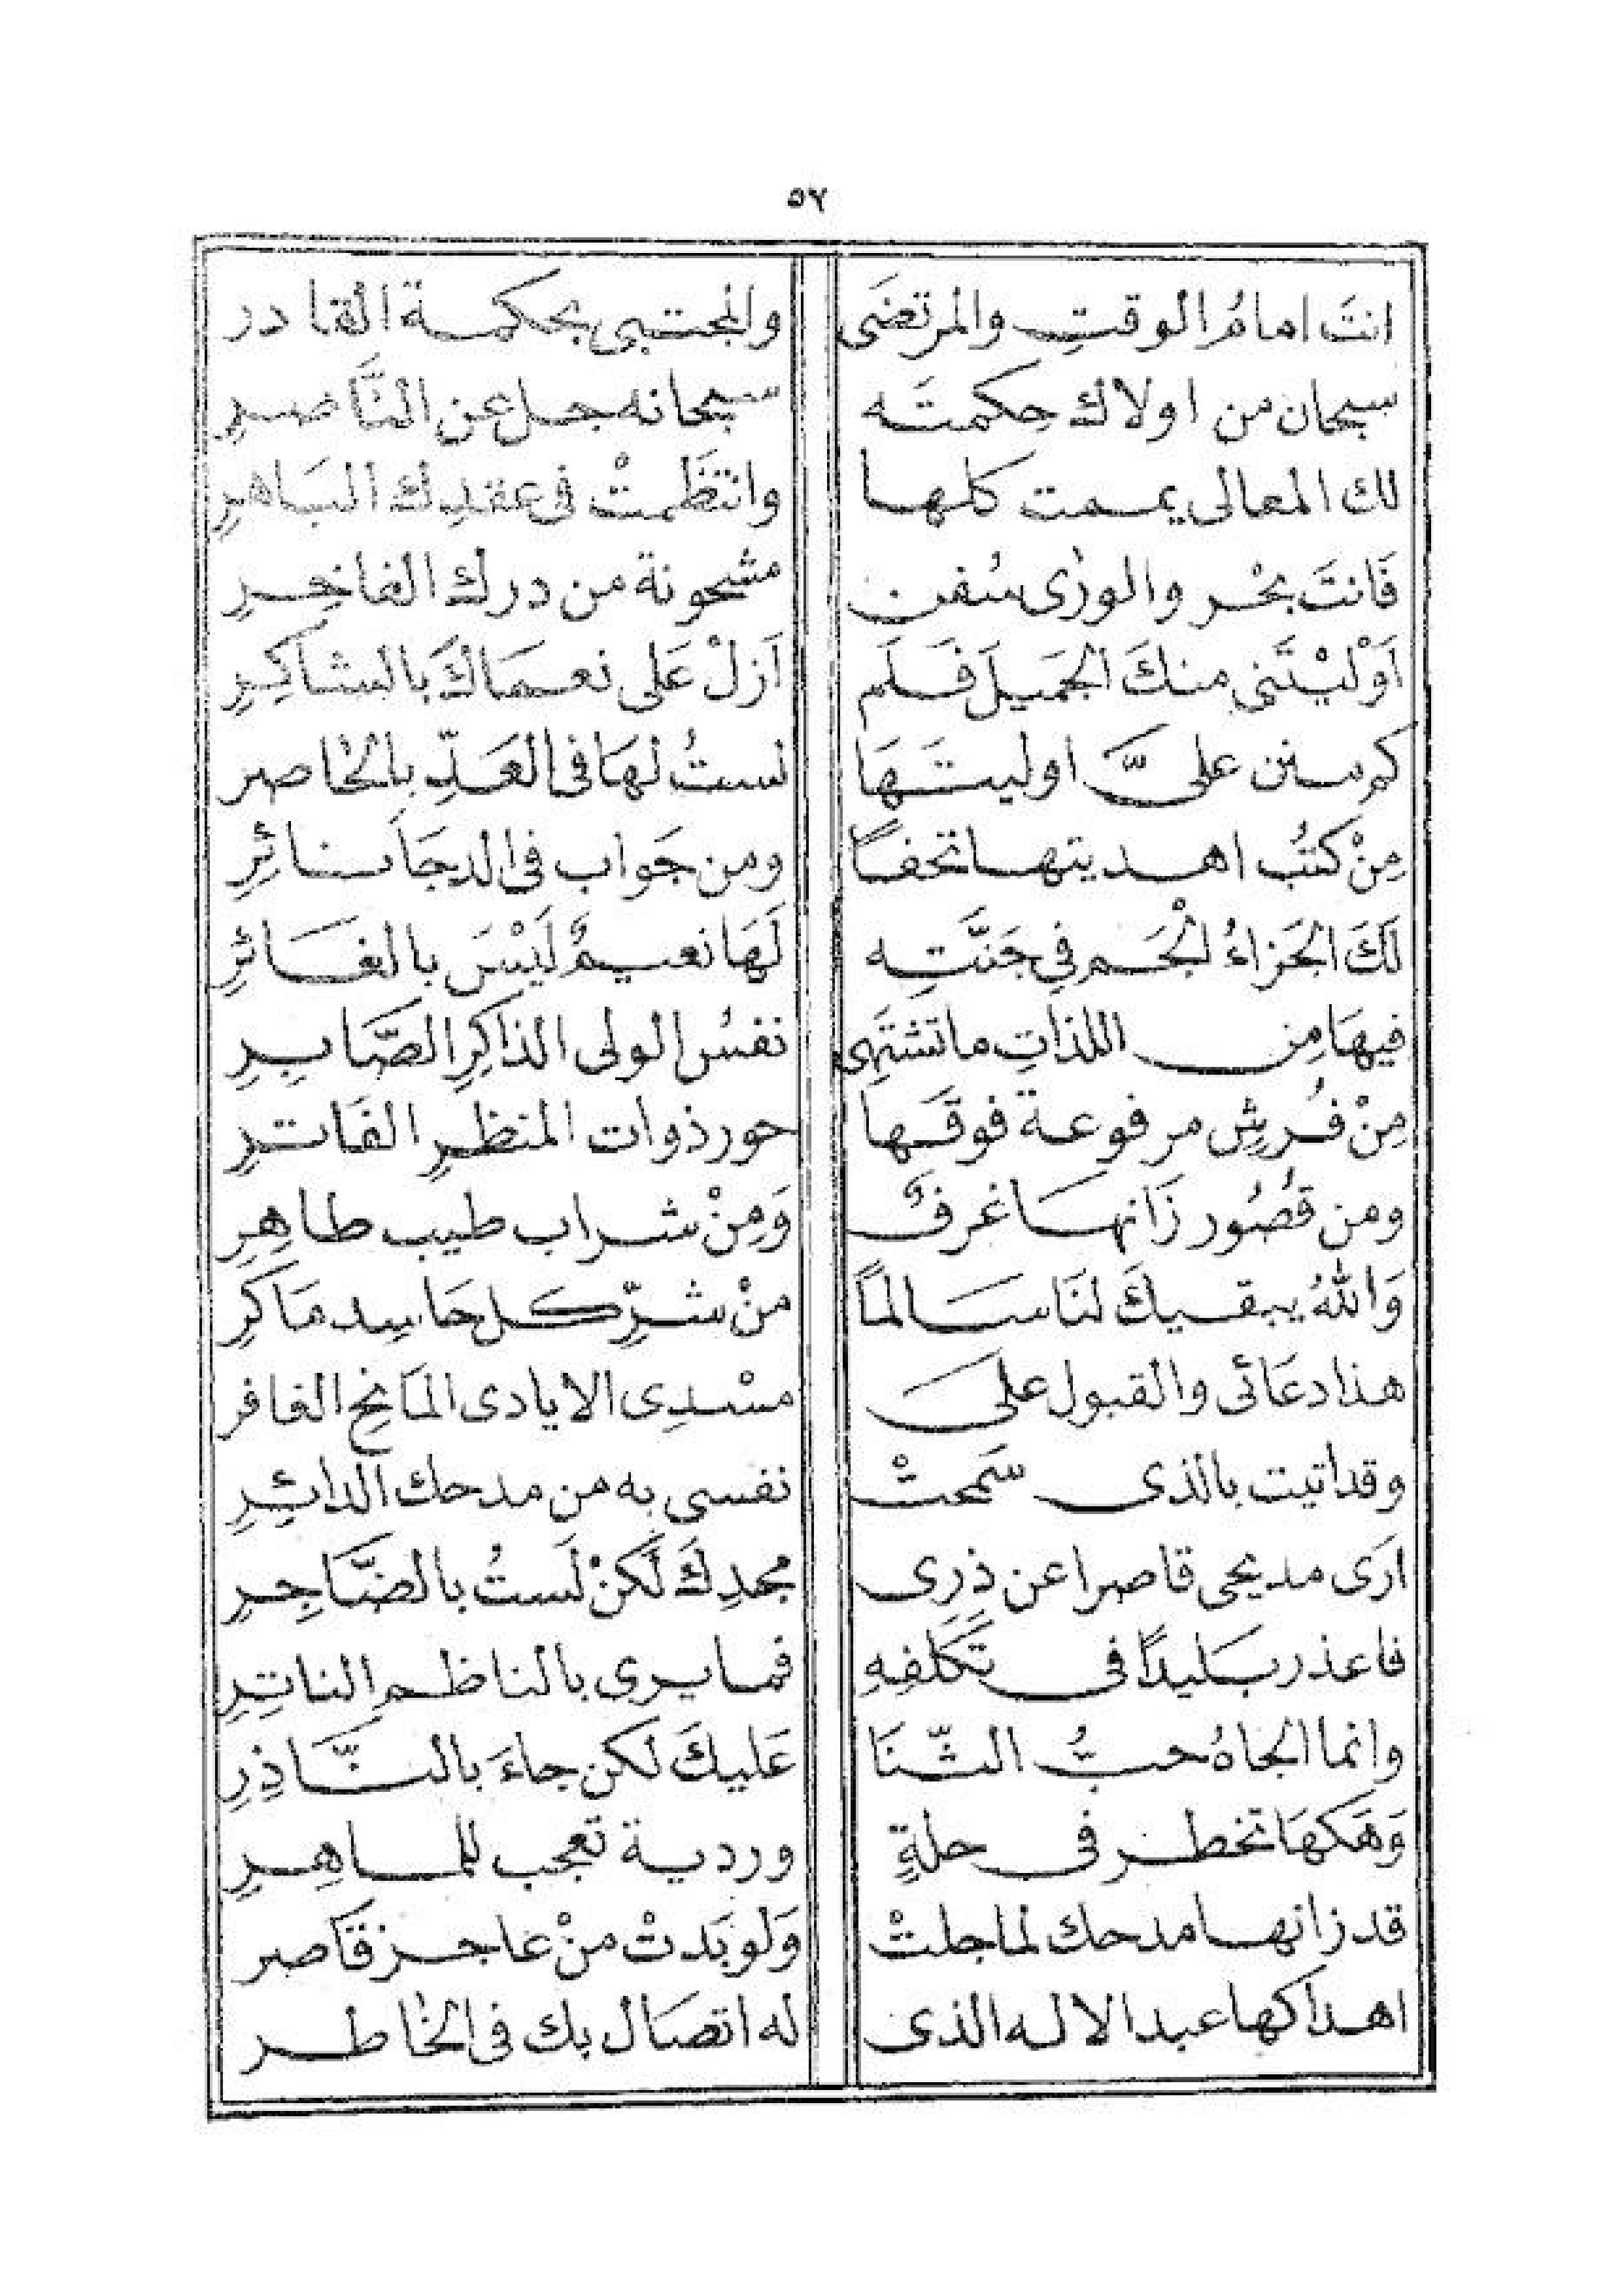 ٥٧
انتَ امامُ الوقتِ والمرتضَى والمجتبى بحكمة القادر
سبحان من اولاك حكمتَه سبحانه جل عن النَّاصرِ
لك المعالى يممت كلها وانتظَمتْ فى عقدِك البَاهرِ
فَانتَ بحْر والورٰى سُفن مشحونة من درك الفاخِرِ
اَوْلَيْتَنى منكَ الجَميلَ فَلَم اَزلْ عَلى نعمَاكَ بالشاكِرِ
كم منن علىَّ اوليتَهَا لستُ لهَا فى العَدِّ بالحاصر
مِنْ كتُب اهديتها تحفاً ومن جَواب فى الدجَا نائِرِ
لَكَ الجَزاءُ الْجَم فِي جَنَّتِه لَهَا نعيمٌ لَيْسَ بالغَائرِ
فيهَا مِن اللذاتِ ما تشتَهِى نفسُ الولى الذاكِرِ الصَّابِرِ
مِنْ فُرشٍ مرفوعة فوقَها حور ذوات المنظرِ الفَاترِ
ومن قصُور زَانها غرفٌ وَمِنْ شراب طيب طاهِرِ
وَاللهُ يبقيكَ لنَا سَالماً منْ شرِّ كل حَاسِد مَاكرِ
هذا دعَائى والقبول علىَ مسْدِى الايادى المَانِحِ الغافر
وقد اتيت بالذى سَمحتْ نفسى به من مدحك الدائِرِ
ارَى مديحى قاصرا عن ذرِى مجدِكَ لَكنْ لَستُ بالضَّاجِرِ
فاعذر بَليدًا فى تَكَلفِهِ فما يرى بالناظم الناتِرِ
وانما الجاهُ حبُّ الثّنَا عَليكَ لكن جاءَ بالنَّاذِرِ
وَهَكهَا تخطر فى حلةٍ وردية تعجب للماهِرِ
قد زانها مدحك لما جلتْ وَلو بَدتْ منْ عاجز قَاصر
اهداكها عبد الاله الذى له اتصَال بك فى الخاطر